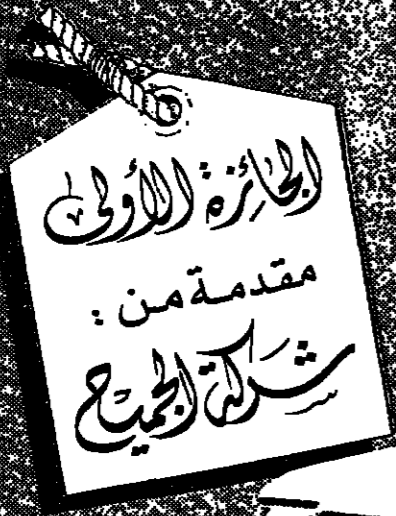 الجائزة الأولى
مقدمة من :
شركة الجميح